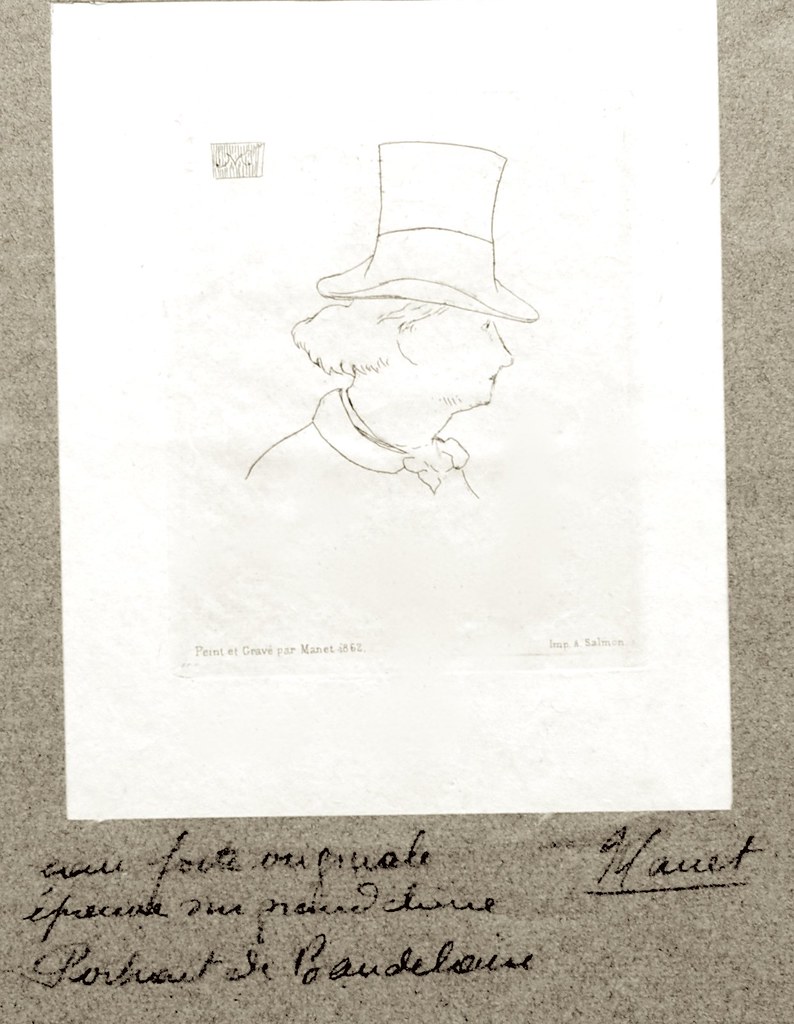 M.
Peint et Gravé par Manet 1862.
Imp. A. Salmon.
eau forte originale
Manet
épreuve sur grand chine
Portrait de Baudelaire